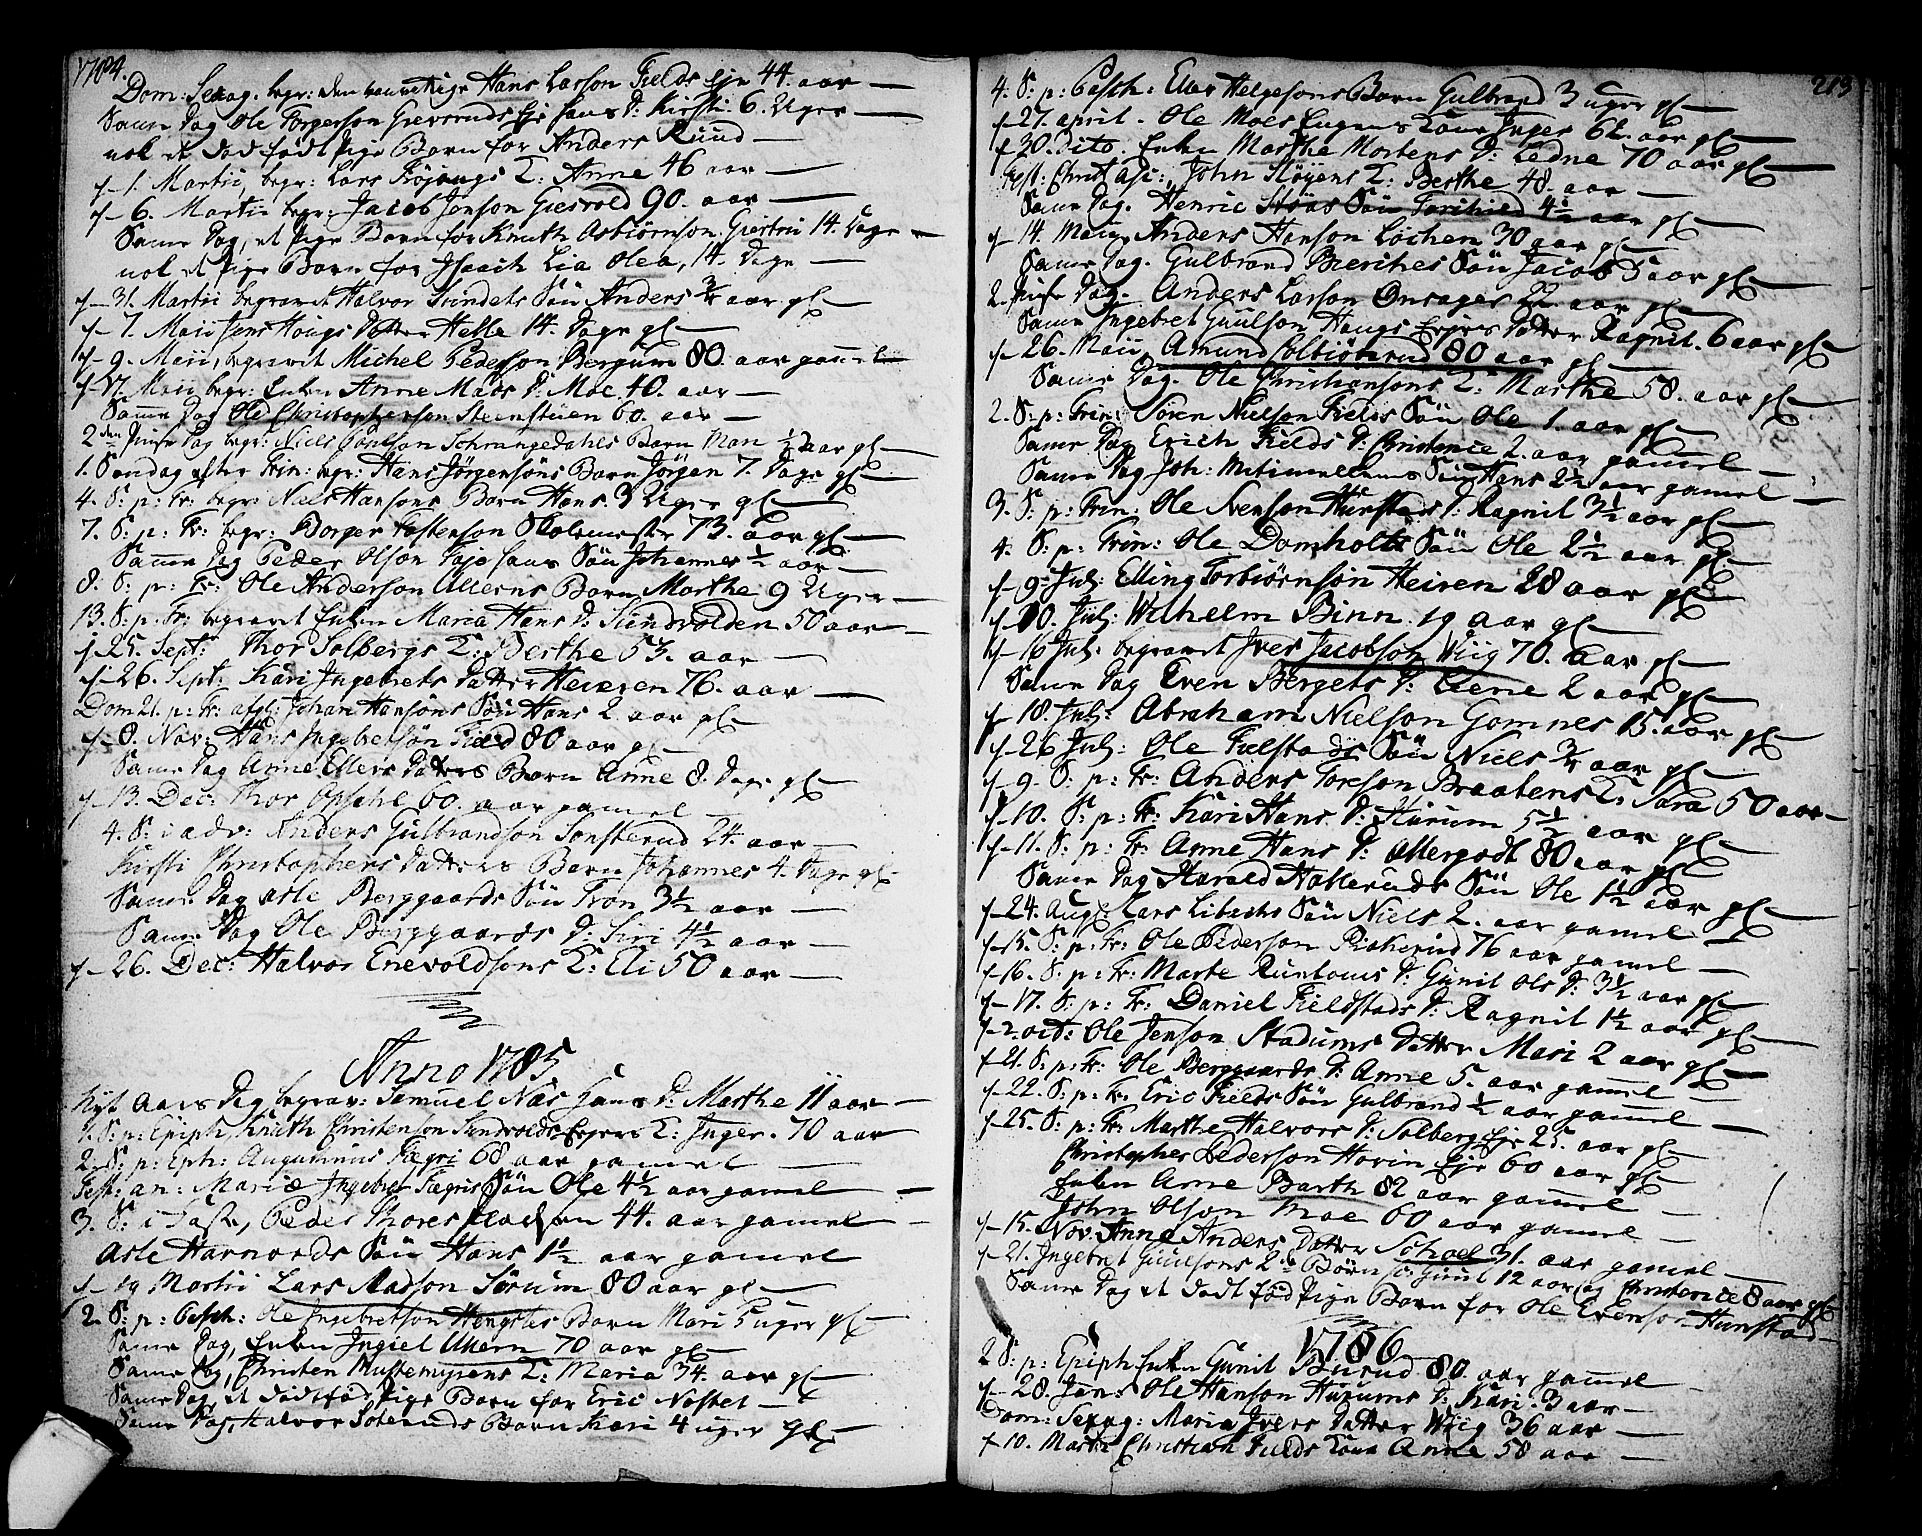 1784.
Dom: Sexag. begr: den vanvittige Hans Larson Fields Eje 44. aar —
Samme Dag Ole Torgerson Greveruds Eje hans D: Kirsti 6. Uger —
nok et dødfødt Pige Barn for Anders Ruud —
f- 1. Martii, begr: Lars Frøjangs K: Anne 46 aar —
f- 6. Martii begr: Jacob Jonson Giesvold 90. aar —
Samme Dag, et Pige Barn for Knuth Asbiørnson 14. Dage —
nok et Pige Barn for Isaach Lia Olea, 14. Dage —
f- 31. Martii begravet Halvor Svindets Søn Anders ¾ aar gl —
f- 7. Maii Jens Hougs Datter Helle 14. Dage gl —
f- 9. Maii, begravet Michel Pederson Bergum 80. aar gammel
f- 17. Maii begr: Enken Anne Mads D: Moe 40. aar —
Samme Dag Ole Christopherson Steenstuen 60. aar —
2den Pinse Dag begr: Niels Schrangedahls Barn Mari ½ aar gl —
1. Søndag efter Trin: begr: Hans Jørgensøns Barn Jørgen 7. Dage gl —
4. S: p: Tr: begr: Niels Hansons Barn Hans 3 Uger gl —
7. S: p: Tr: begr: Borger Tostenson Skolemester 73. aar gl —
Samme Dag Peder Olson hans Søn Johannes ½ aar —
8. S: p: Tr: Ole Anderson Ullerns Barn Marthe 9 Uger —
13. S: p: Tr: begravet Enken Maria Hans D: Sundvolden 50 aar —
f- 25. Sept: Thor Solbergs K: Berthe 53. aar —
f- 26. Sept: Kari Ingebrets Datter Heieren 76. aar —
Dom 21. p: Tr: Johan Hansøns Søn Hans 2. aar gl —
f- 8. Nov: Hans Ingebretsøn Field 80 aar gl —
Samme Dag Anne Ellers Datters Barn Anne 8. Dage gl —
f- 13. Dec: Thor Opsahl 60. aar gamel —
4. S: i adv: Anders Gulbrandson Sonsterud 24. aar —
Kirsti Christophers Datters Barn Johannes 4. Dage gl —
Samme Dag Asle Berggaards Søn Tron 3½ aar —
Samme Dag Ole Berggaards D: Siri 4½ aar —
f- 26. Dec: Halvor Enevoldsons K: Eli 50 aar —
Anno 1785
Nyt Aars Dag begrav: Samuel Næs hans D: Marthe 11 aar —
1. S: p: Epiph, Knuth Christenson Sundvolds Ejers K: Inger. 70 aar
2. S: p: Eph: Augustinus Fægri 68 aar gamel —
Fest: an: Mariæ Ingebret Fægris Søn Ole 4½ aar gamel —
3. S: i Faste, Peder Thores 44. aar gamel —
Asle Harnords Søn Hans 1½ aar gamel
f- 19 Martii Lars Madson Sørum 80 aar gl —
2. S: p: Pasch: Ole Ingebretson Hengsles Barn Mari 5 uger gl —
Samme Dag, Enken Ingiel Ullern 70 aar gl —
Samme Dag, Christen Mustemyrens K: Maria 34. aar gl —
Samme Dag, et dødtfød Pige Barn for Eric Nøsset —
Samme Dag, Halvor Barn Kari 4 uger gl —
213
4. S: p: Pasch: Elor Helgesons Barn Gulbrand 3 uger gl —
f- 27. april. Ole Moes Eugens Kone Inger 62. aar gl —
f- 30. Dito. Enken Martha Mortens D: Ledne 70 aar gl —
Fest: Christ Asc: John Høyens K: Berthe 48. aar —
Samme Dag. Henric Støas Søn 4½ aar gl —
f- 14. Maii, Anders Hanson Løchen 30 aar gl —
Samme Dag. Gulbrand Søn Jacob 5 aar gl —
2. Pinse Dag. Anders Larson Onsager 22. aar gl —
Samme Ingebret Guulson Hougs Ejers Datter Ragnil. 6 aar gl —
f- 26. Maii, Amund Solbiørnrud 80 aar gl —
Samme Dag. Ole Christiansons K: Marthe 58. aar gl —
2. S: p: Trin: Søren Nielson Fields Søn Ole 1. aar gl —
Samme Dag Erich Fields D: Christence 2. aar gammel —
Samme Dag Joh: Søn Hans 2½ aar gamel —
3. S: p: Trin: Ole Nenson Hunstads D: Ragnil 3½ aar gl —
4. S: p: Trin: Ole Domholts Søn Ole 2½ aar gl —
f- 9. Jul: Elling Torbiørnsøn Heiren 28 aar gl —
f- 10. Jul: Wilhelm Binn. 19 aar gl —
f- 16 Jul: begravet Iver Jacobson Wiig 70. aar gl —
Samme Dag Even Bergets D: Lene 2 aar gl —
f- 18. Jul: Abraham Nielson Gomnes 15. aar gl —
f- 26 Jul: Ole Fielstads Søn Niels ¾ aar gl —
f- 9. S: p: Tr: Anders Toreson Braatens K: Sara 50 aar —
f- 10. S: p: Tr: Kari Hans D: Hurum 5½ aar gl —
f- 11. S: p: Tr: Anne Hans D: Allergodt 80 aar gl —
Samme Dag Harald Halleruds Søn Ole 1½ aar gl —
f- 24. Aug: Lars Libachs Søn Niels 2. aar gamel —
f- 15. S: p: Tr: Ole Pederson Rakerud 76 aar gamel —
f- 16. S: p: Tr: Marte D: Gunil Ols D: 3½ aar gl —
f- 17. S: p: Tr: Daniel Fieldstads D: Ragnil 1½ aar gl —
f- 2. oct: Ole Jenson Stadums Datter Mari 2 aar gl —
f- 21. S: p: Tr: Ole Berggaards D: Anne 5. aar gamel —
f- 22. S: p: Tr: Eric Fields Søn Gulbrand ½ aar gamel —
f- 25. S: p: Tr: Marthe Halvors D: Solberg Eje 25. aar gl —
Christopher Pederson Hovin Eje 60 aar gl —
Enken Anne Barth 82 aar gammel —
John Olson Moe 60 aar gamel —
f- 15. Nov: Anne Anders Datter Schoel 31. aar gamel —
f- 21. Ingebret Guulsons 2de Børn s: Guul 12 aar og Christence 8 aar gl —
Samme Dag et dødt fød Pige Barn for Ole Evenson Hunstad —
1786
2 S: p: Epiph Enken Gunil Burud 80. aar gammel —
f- 28. Jan: Ole Hanson Hurums D: Kari. 3 aar —
Dom: Sexag: Maria Ivers Datter Wiig 36 aar —
f- 10. Martii Christian Fields Kone Anne 58 aar —